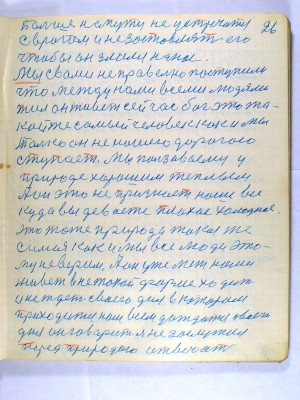 больше к нему ни не встречать 26
с врагом и не заставлять его
чтобы он злому начал.
Мы с вами не правельно поступили
что между нами всеми людями
жил он живет сей час бог это та-
кой же самый человек как и мы
Только он не нашего дорогою
ступает. Мы пользваемся у
природе хорошим теплым
А он это не признает наше все
куда вы деваете плохое холодное.
это тоже природа такая же
самая как и мы все люди это-
му не верим, А он уже меж нами
живет в не такой форме ходит
и не ждет своего дня в котором
приходится нам всем дожидать своего
дня он говарит я не заслужил
перед природою отвечать